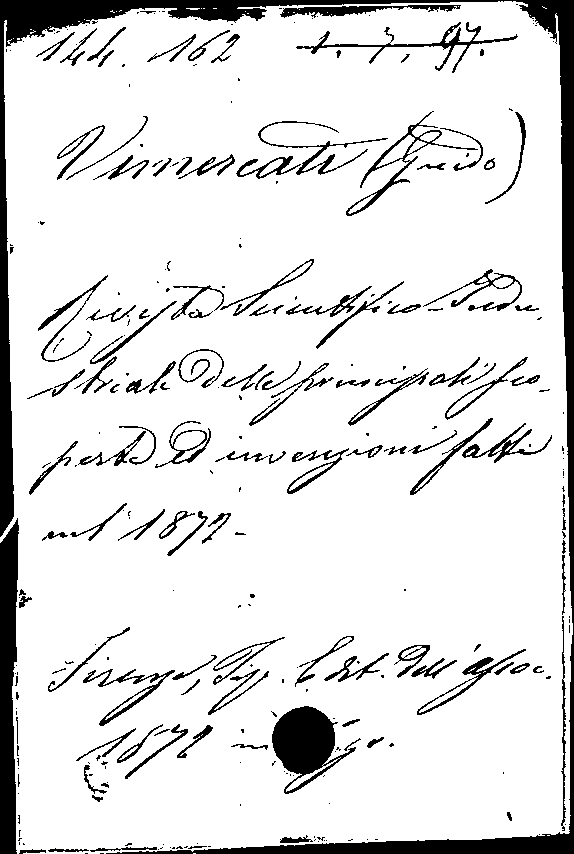 144. 162 1. 7, 97.
Vimercati (Guido)
Rivista Scientifico-Indu,
striale delle principali sco-
perte ed invenzioni fatte
nel 1872-
Firenze, Tip. Edit. dell'assoc.
1872 in